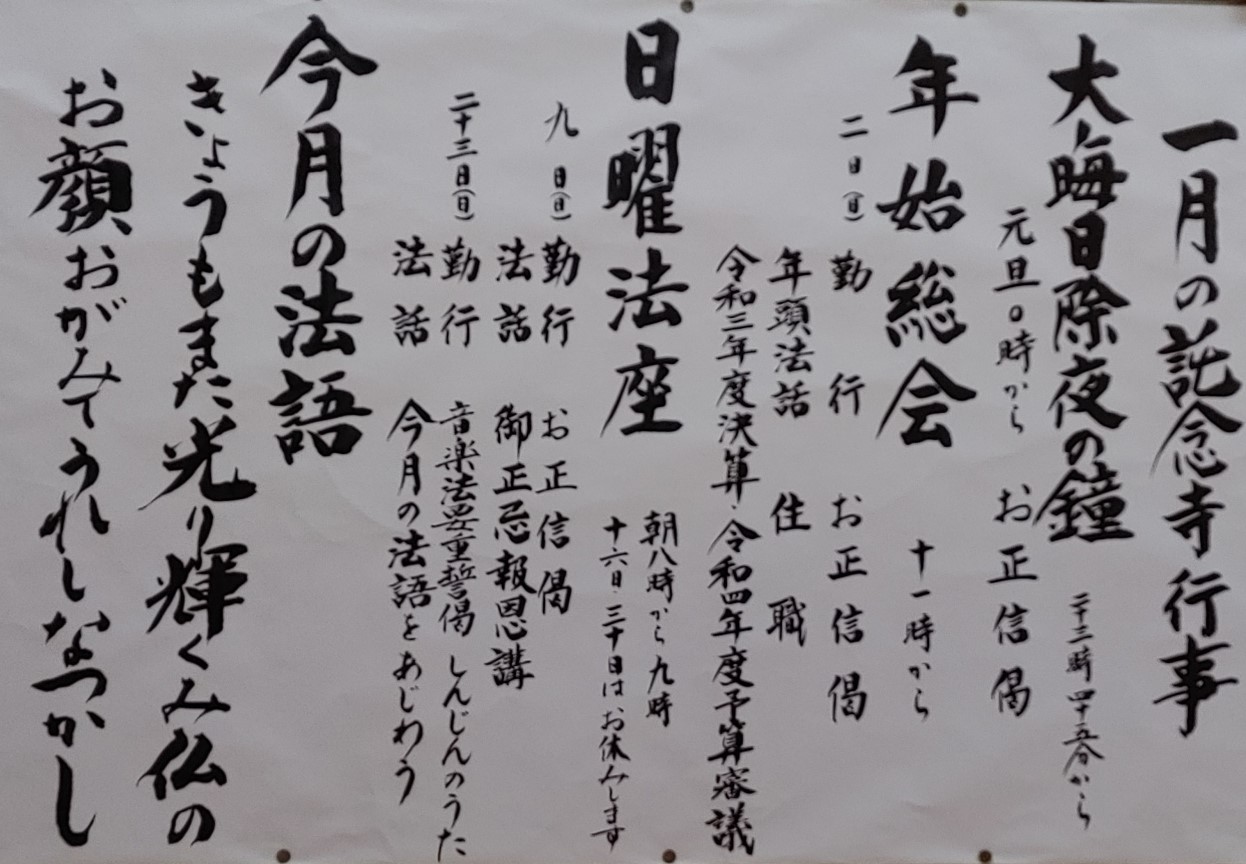 一月の託念寺行事
大晦日除夜の鐘 二十三時四十五分から
元旦〇時から お正信偈
年始総会 十一時から
二日(日) 勤行 お正信偈
年頭法話 住職
令和三年度決算・令和四年度予算審議
日曜法座 朝八時から九時
十六日・三十日はお休みします
九日(日) 勤行 お正信偈
法話 御正忌報恩講
二十三日(日) 勤行 音楽法要重誓偈 しんじんのうた
法話 今月の法語をあじわう
今月の法語
きょうもまた光り輝くみ仏の
お顔おがみてうれしなつかし